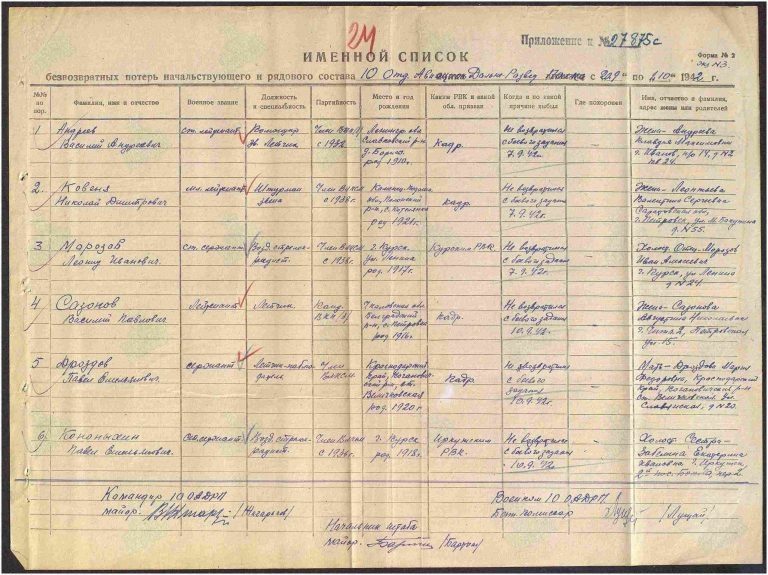 24
Приложение к №27875с
ИМЕННОЙ СПИСОК
Форма № 2
безвозвратных потерь начальствующего и рядового состава 10 Отд. Авиацион Дальне-Развед с по 10 1942 г.
№№ по пор.
Фамилия, имя и отчество
Военное звание
Должность и специальность
Партийность
Место и год рождения
Каким РВК и какой обл. призван
Когда и по какой причине выбыл
Где похоронен
Имя, отчество и фамилия, адрес жены или родителей
1
Андреев
Василий Андреевич
ст. лейтенант
Командир
Летчик
Член ВКП/б/
с 1932
Ленингр. обл
Славковский р-н
д.
род 1910г.
Кадр.
Не возвратился
с боевого задания
7.9.42г.
-
Жена- Андреева
Клавдия Максимовна
г. Иваново, п/о 14, д N2
кв 24.
2.
Ковеня
Николай Дмитрович
мл. лейтенант
Штурман
звена
Член ВЛКСМ
с 1938г.
Каменец-Подол.
обл,
р-н, с.
род 1921г.
кадр.
Не возвратился
с боевого задания
7.9.42г.
-
Жена- Леонтьева
Валентина Сергеевна
Саратовская обл,
г. Петровск, ул. М.
д. N55.
3
Марозов
Леонид Иванович.
ст. сержант
Возд. стрелок-
радист.
Член ВЛКСМ
с 1938г.
г. Курск.
ул. Ленина
род 1917г.
Курским РВК.
Не возвратился
с боевого задания
7.9.42г.
-
Холост. Отец- Марозов
Иван
г. Курск, ул. Ленина
д N24.
4
Сазонов
Василий Павлович.
Лейтенант
Летчик
Канд.
ВКП/б/
Чкаловская обл.
р-н, с. Петровск
род 1916г.
Кадр.
Не возвратился
с боевого задания
10.9.42г.
-
Жена- Сазонова
Николаевна
г. Чита 2, Петровская
ул. 15.
5
Дроздов
Павел Емельявич.
сержант
Летчик-наблю-
датель
Член
ВЛКСМ.
Краснодарский
Край,
р-н, ст.
Величковская
род. 1920г
Кадр.
Не возвратился
с боевого
задания
10.9.42г.
-
Мать- Дроздова Мария
Федоровна, Краснодарский
край, р-н
ст. Величковская ул.
Славянская, д N20.
6.
Кононыхин
Павел Емельянович.
сержант
Возд. стрелок-
радист.
Член ВЛКСМ
с 1936г.
г. Курск
род. 1918г.
Иркутским
РВК.
Не возвратился
с боевого задания
10.9.42г.
-
Холост Сестра-
Екатерина
Ивановна г. Иркутск,
Командир 10 ОАДРП
майор.
Военком 10 ОАДРП
Бат. комиссар
/Лущай/
Начальник штаба
майор.